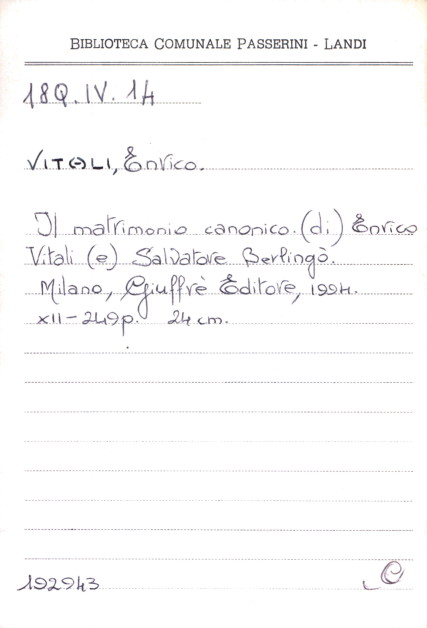 BIBLIOTECA COMUNALE PASSERINI - LANDI
18Q.IV.14
VITALI, Enrico.
Il matrimonio canonico. (di) Enrico
Vitali (e) Salvatore Berlingò.
Milano, Giuffrè Editore, 1994.
XII-249p. 24 cm.
192943
C